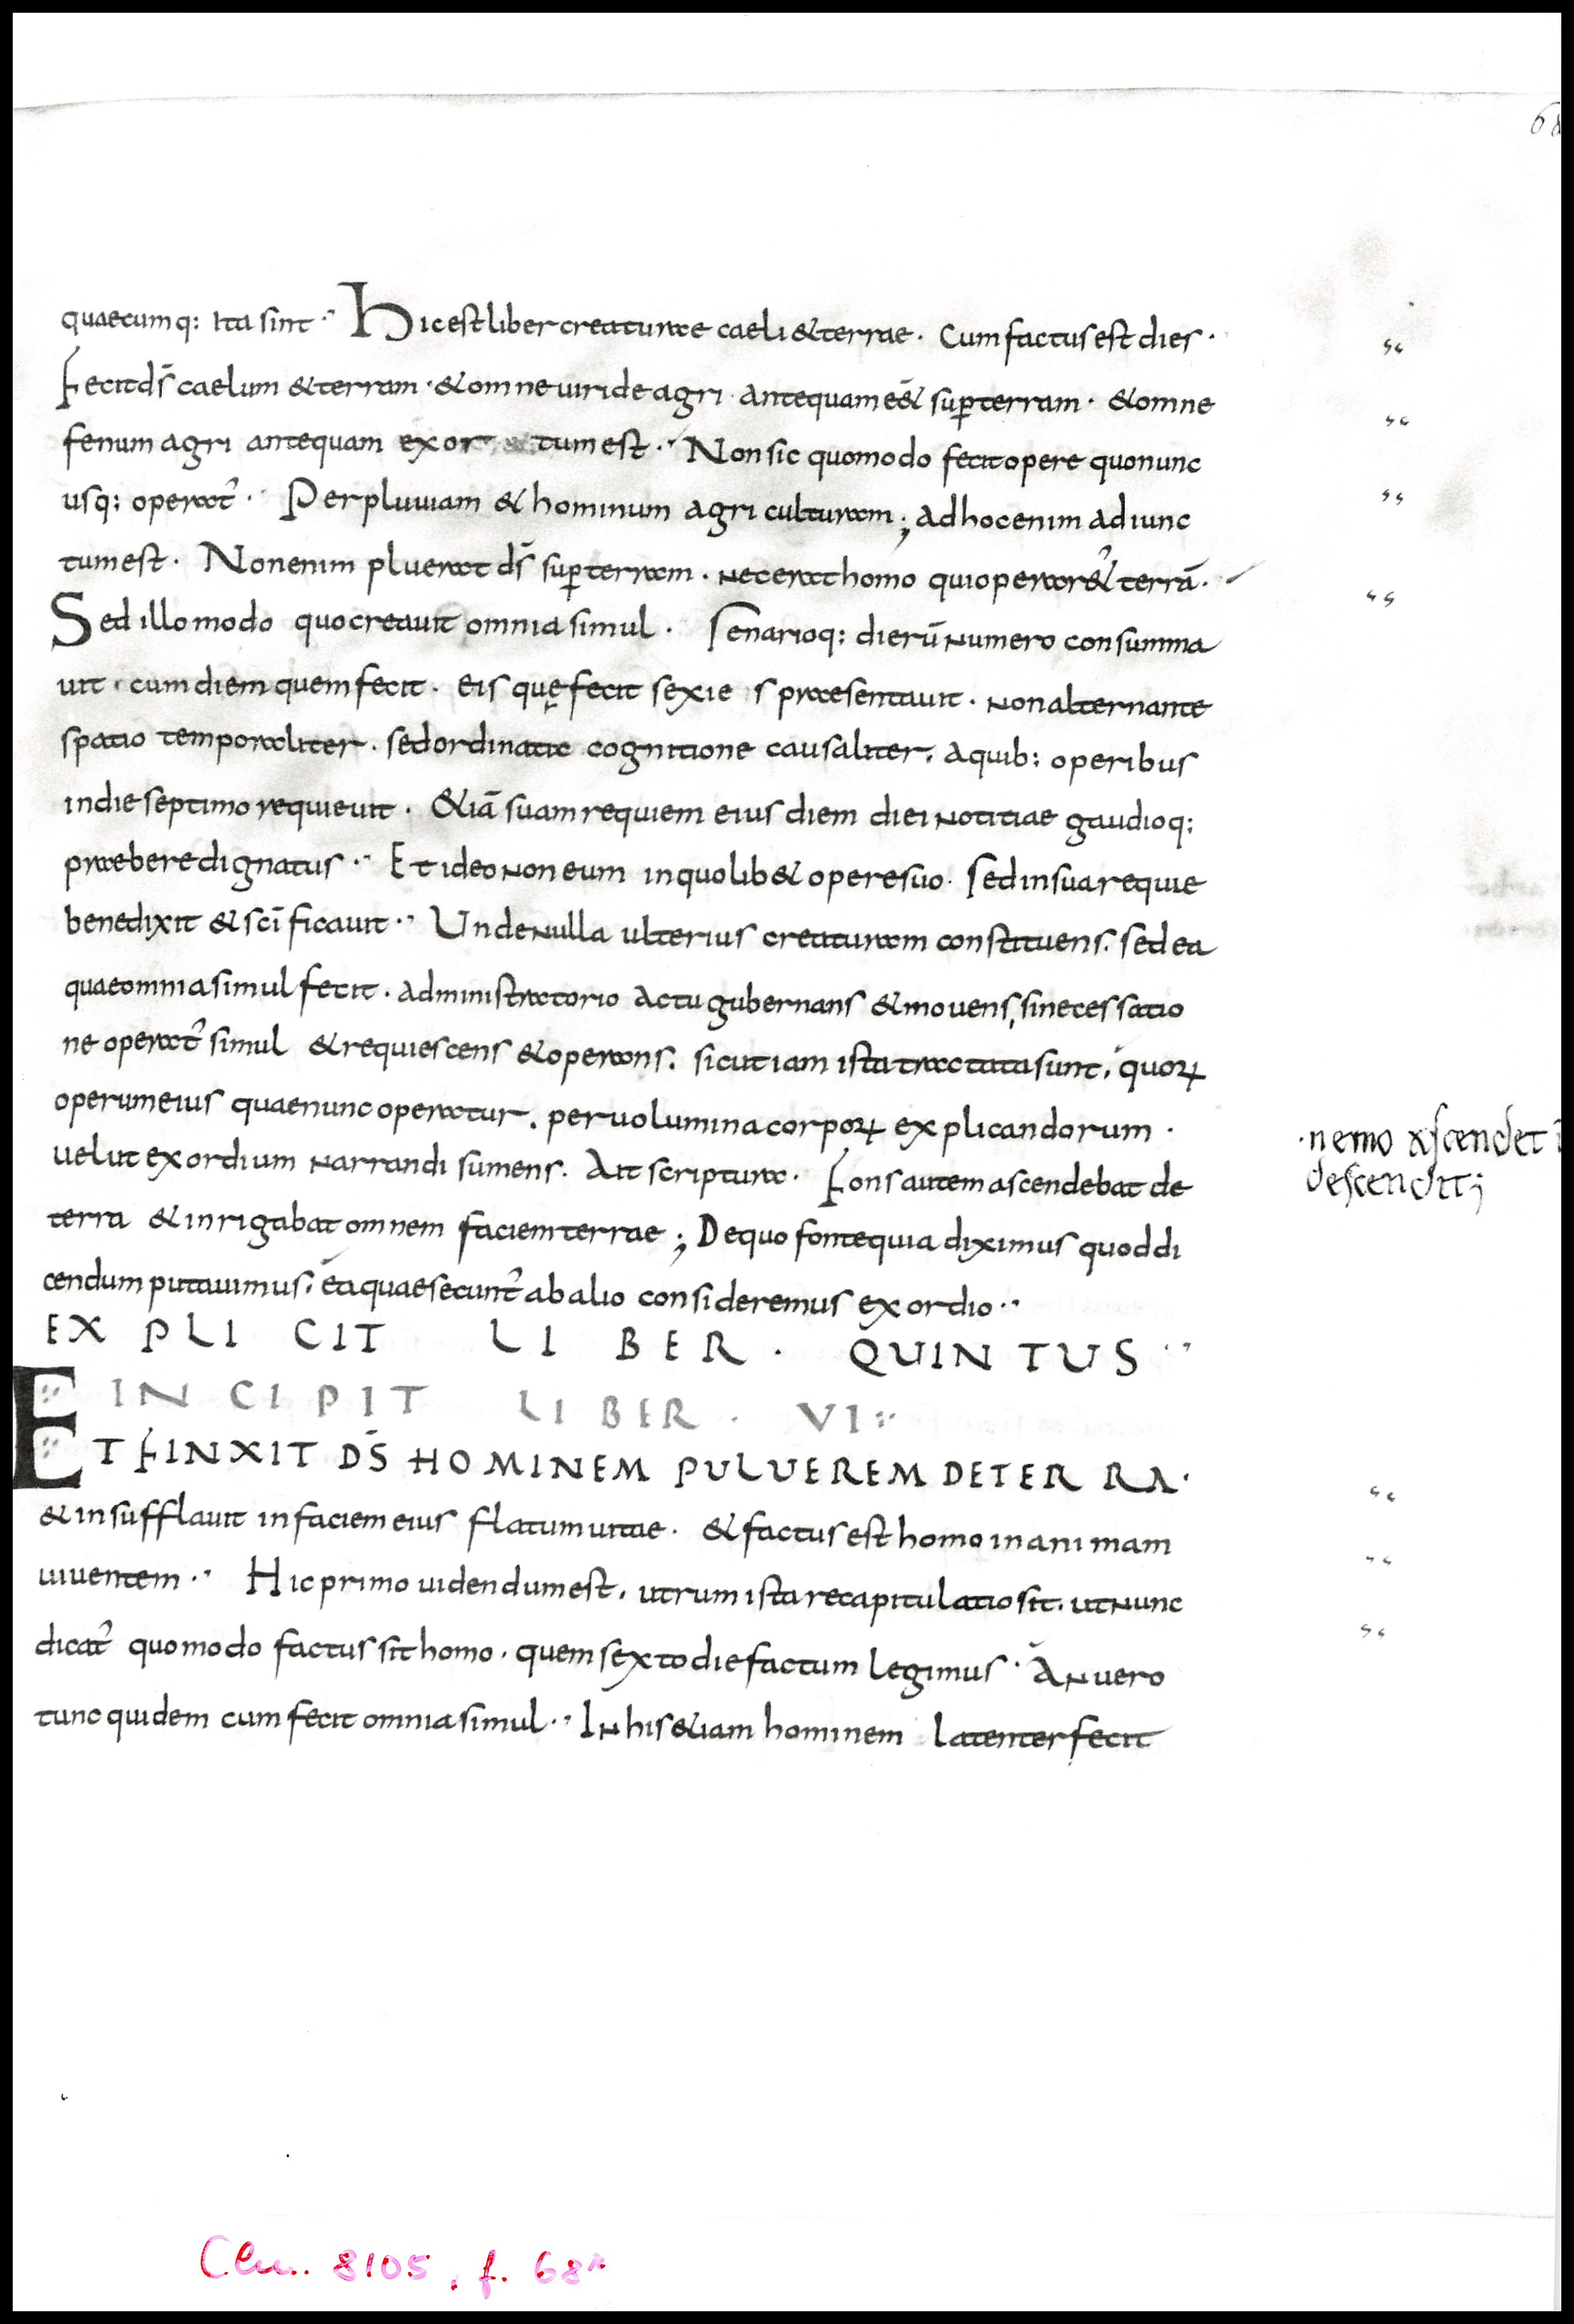 68
quaecumq: ita sint·" Hic est liber creaturae caeli & terrae. Cum factus est dies.
Fecit d̄s caelum & terram. & omne uiride agri antequam eē& suꝑ terram. & omne
fenum agri antequam exor tum est." Non sic quomodo fecit opere quo nunc
usq: operat᷑. Per pluuiam & hominum agri culturam; Ad hoc enim adiunc
tum est. Non enim pluerat d̄s suꝑ terram. nec erat homo qui operar&᷑ terrā.
Sed illo modo quo creauit omnia simul. Senarioq: dierū numero consumma
uit. cum diem quem fecit. eis quę fecit sexies praesentauit. non alternante
spatio temporaliter. sed ordinatae cognitione causaliter. A quib: operibus
in die septimo requieuit. &iā suam requiem eius diem diei notitiae gaudioq:
praebere dignatus·" Et ideo non eum in quolib& opere suo. Sed in sua requie
benedixit & sc̄ificauit·" Unde nulla ulterius creaturam constituens. sed ea
quae omnia simul fecit. administratorio actu gubernans & mouens, sine cessatio
ne operat᷑ simul & requiescens & operans. sicut iam ista tractata sunt. quoꝝ
operum eius quae nunc operatur. per uolumina corpoꝝ explicandorum.
uelut exordium narrandi sumens. Ait scriptura. Fons autem ascendebat de
terra & inrigabat omnem faciem terrae; De quo fonte quia diximus quod di
cendum putauimus. ea quae secunt᷑ ab alio consideremus exordio·"
·nemo ascendet
descendit;
EXPLICIT LIBER. QUINTUS·"
INCIPIT LIBER. VI:·
ET FINXIT D̄S HOMINEM PULUEREM DE TERRA.
& insufflauit in faciem eius flatum uitae. & factus est homo in animam
uiuentem·" Hic primo uidendum est. utrum ista recapitulatio sit. ut nunc
dicat᷑ quomodo factus sit homo. quem sexto die factum legimus. An uero
tunc quidem cum fecit omnia simul·" In his &iam hominem latenter fecit
Clm. 8105, f. 68r